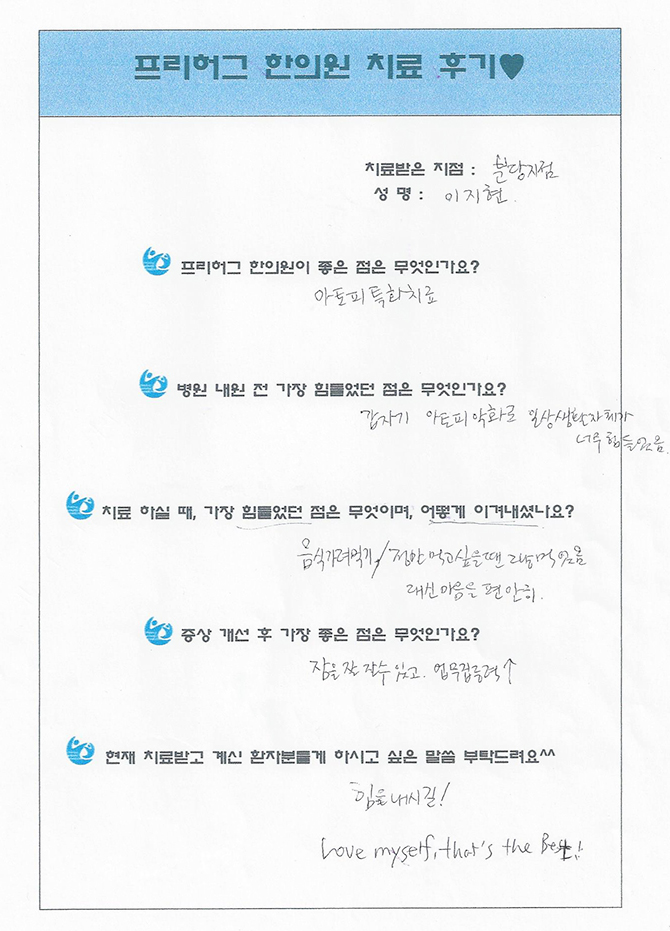 프리허그 한의원 치료 후기♥
치료받은 지점 : 분당지점
성 명 : 이지현.
프리허그 한의원이 좋은 점은 무엇인가요?
아토피 특화치료
병원 내원 전 가장 힘들었던 점은 무엇인가요?
갑자기 아토피 악화로 일상생활자체가
너무 힘들었음.
치료 하실 때, 가장 힘들었던 점은 무엇이며, 어떻게 이겨내셨나요?
음식가려먹기/ 정안 먹고싶을땐 그냥 먹었음
대신 마음을 편안히.
증상 개선 후 가장 좋은 점은 무엇인가요?
잠을 잘 잘수 있고. 업무집중력↑
현재 치료받고 계신 환자분들게 하시고 싶은 말씀 부탁드려요^^
힘을 내시길!
Love myself, that's the Best!